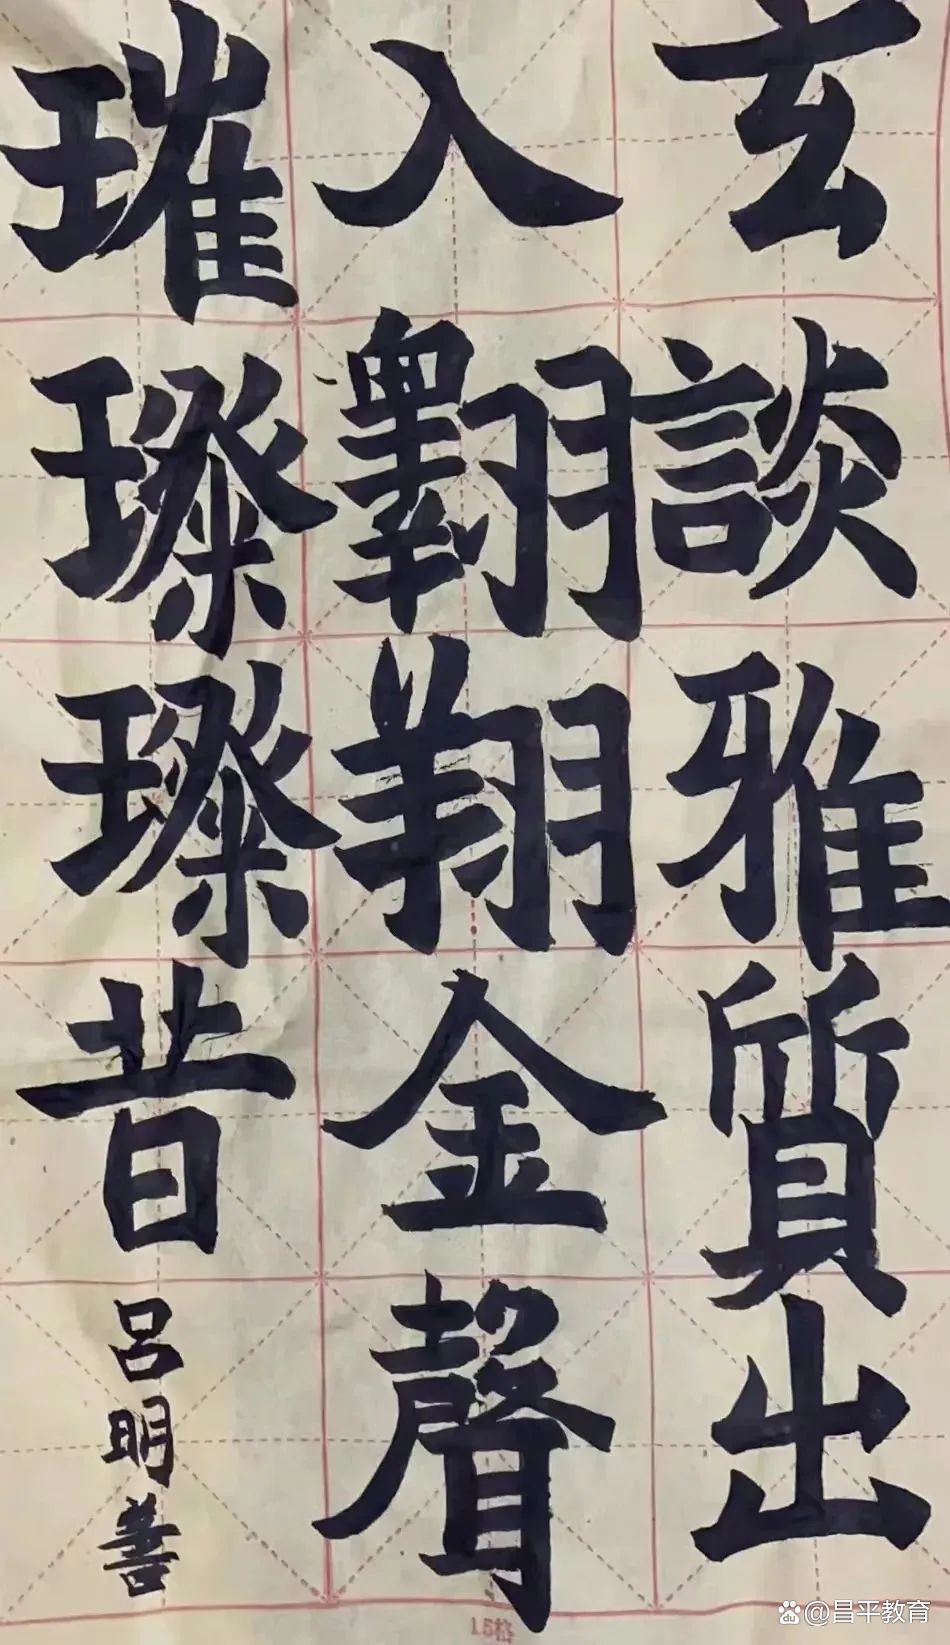 玄談雅質出
入翺翔金聲
璀璨璨昔
吕明善
15格
@昌平教育